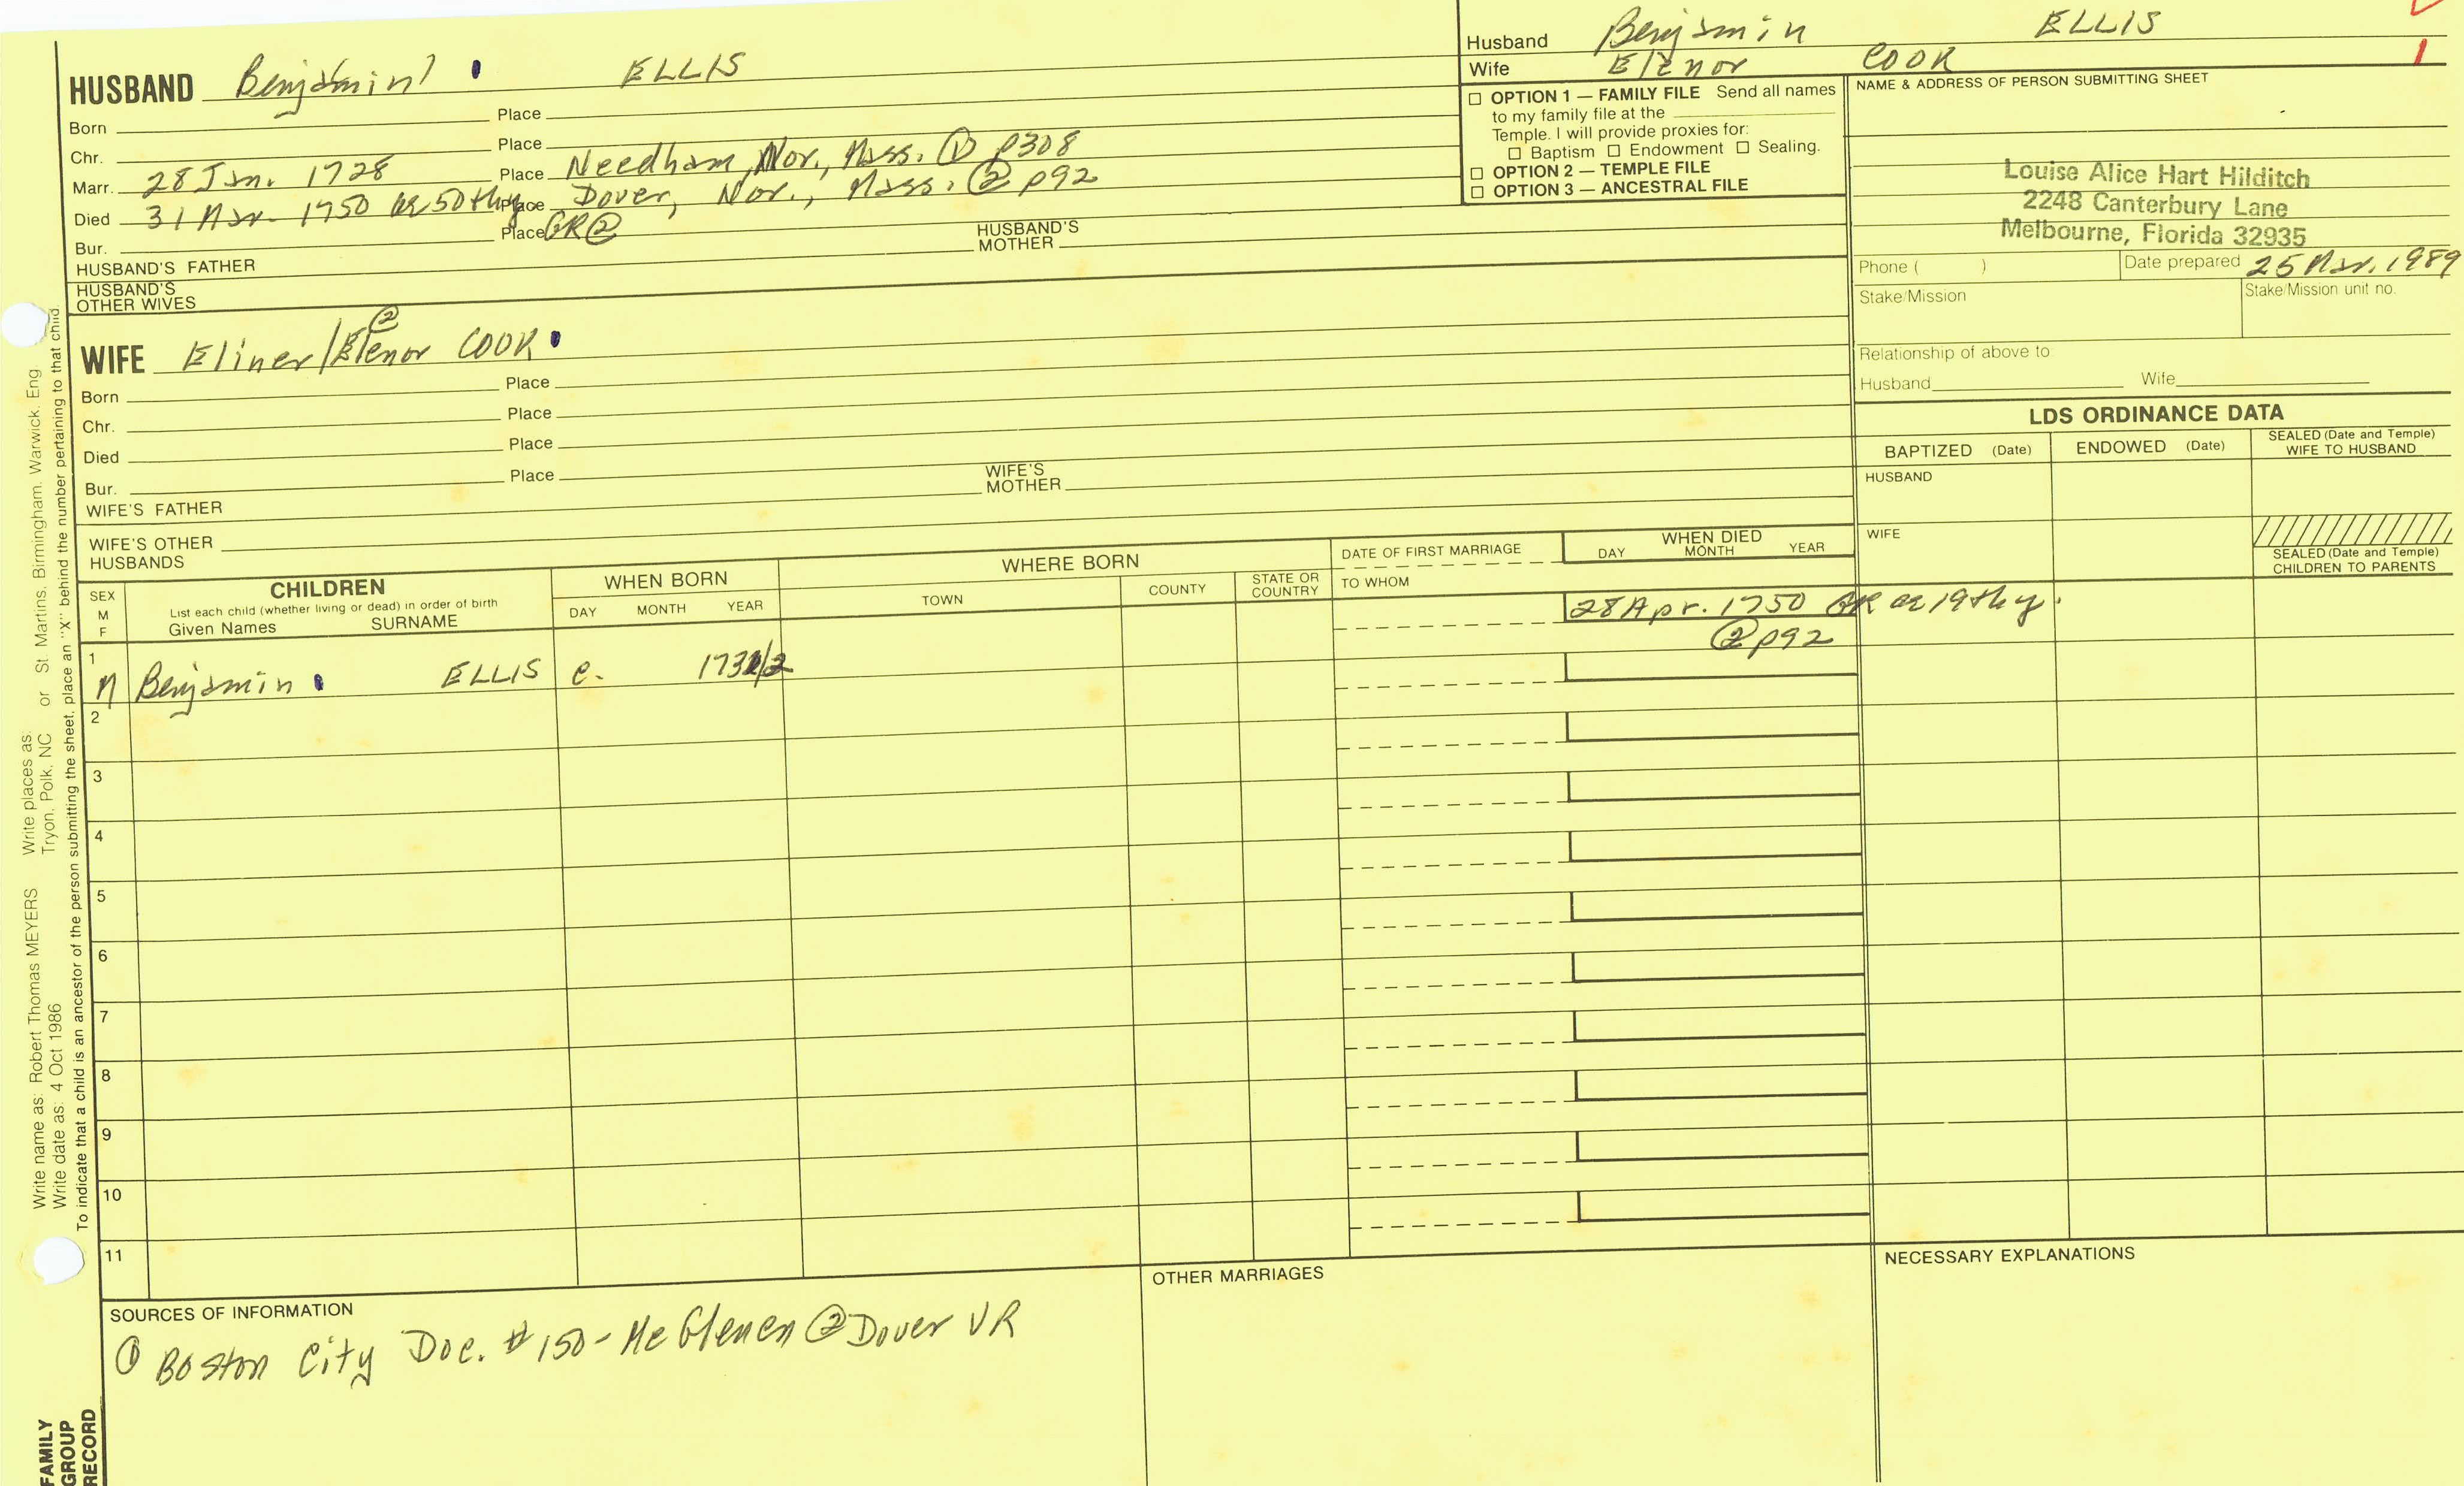 Husband Benjamin ELLIS
Wife Elenor COOK 1
HUSBAND Benjamin ELLIS
Born Place
Chr. Place
Marr. 28 Jan. 1728 Place Needham, Nor., Mass. ① p308
Died 31 Mar. 1750 ae 50th y Place Dover, Nor., Mass. ② p92
Bur. Place GR②
HUSBAND'S FATHER HUSBAND'S MOTHER
HUSBAND'S OTHER WIVES
☐ OPTION 1 — FAMILY FILE Send all names
to my family file at the
Temple. I will provide proxies for:
☐ Baptism ☐ Endowment ☐ Sealing.
☐ OPTION 2 — TEMPLE FILE
☐ OPTION 3 — ANCESTRAL FILE
NAME & ADDRESS OF PERSON SUBMITTING SHEET
Louise Alice Hart Hilditch
2248 Canterbury Lane
Melbourne, Florida 32935
Phone ( ) Date prepared 25 Mar. 1989
Stake/Mission Stake/Mission unit no.
Relationship of above to
Husband Wife
②
WIFE Eliner/Elenor COOK
Born Place
Chr. Place
Died Place
Bur. Place
WIFE'S FATHER WIFE'S MOTHER
WIFE'S OTHER HUSBANDS
LDS ORDINANCE DATA
BAPTIZED (Date) ENDOWED (Date) SEALED (Date and Temple) WIFE TO HUSBAND
HUSBAND
WIFE
SEALED (Date and Temple)
CHILDREN TO PARENTS
SEX M F
CHILDREN
List each child (whether living or dead) in order of birth
Given Names SURNAME
WHEN BORN
DAY MONTH YEAR
WHERE BORN
TOWN COUNTY STATE OR COUNTRY
DATE OF FIRST MARRIAGE
TO WHOM
WHEN DIED
DAY MONTH YEAR
28 Apr. 1750 GR ae 19th y.
② p92
1
M Benjamin ELLIS c. 1731/2
2
3
4
5
6
7
8
9
10
11
SOURCES OF INFORMATION
① Boston City Doc. #150 - McGlenen ② Dover VR
OTHER MARRIAGES
NECESSARY EXPLANATIONS
Write name as: Robert Thomas MEYERS Write places as: St Martins, Birmingham, Warwick, Eng
Write date as: 4 Oct 1986 Tryon, Polk, NC or
To indicate that a child is an ancestor of the person submitting the sheet, place an "X" behind the number pertaining to that child.
FAMILY
GROUP
RECORD